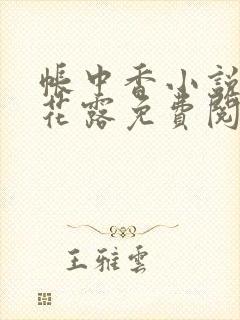 帳中香小説
花露免費閱
王雅雲